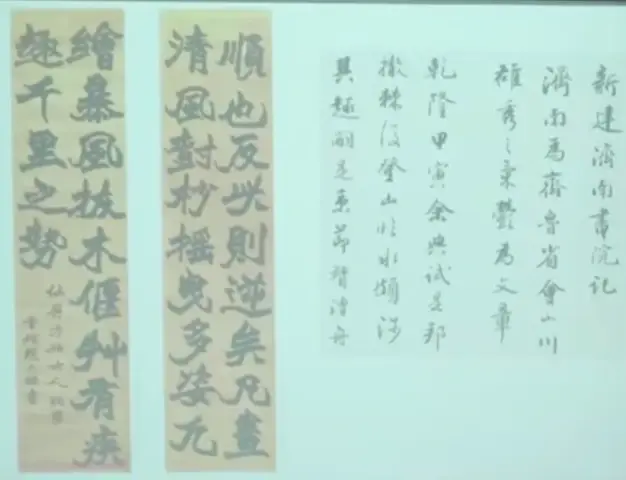 新建濟南書院記
濟南為齊魯省會山川
雄秀之氣鬱為文章
乾隆甲寅余典試是邦
撤棘後登山臨水頗涉
其趣嗣是秉節督漕舟
順也反此則逆矣凡畫
清風對杪搖曳多姿尤
繪暴風拔木偃艸有疾
趣千里之勢